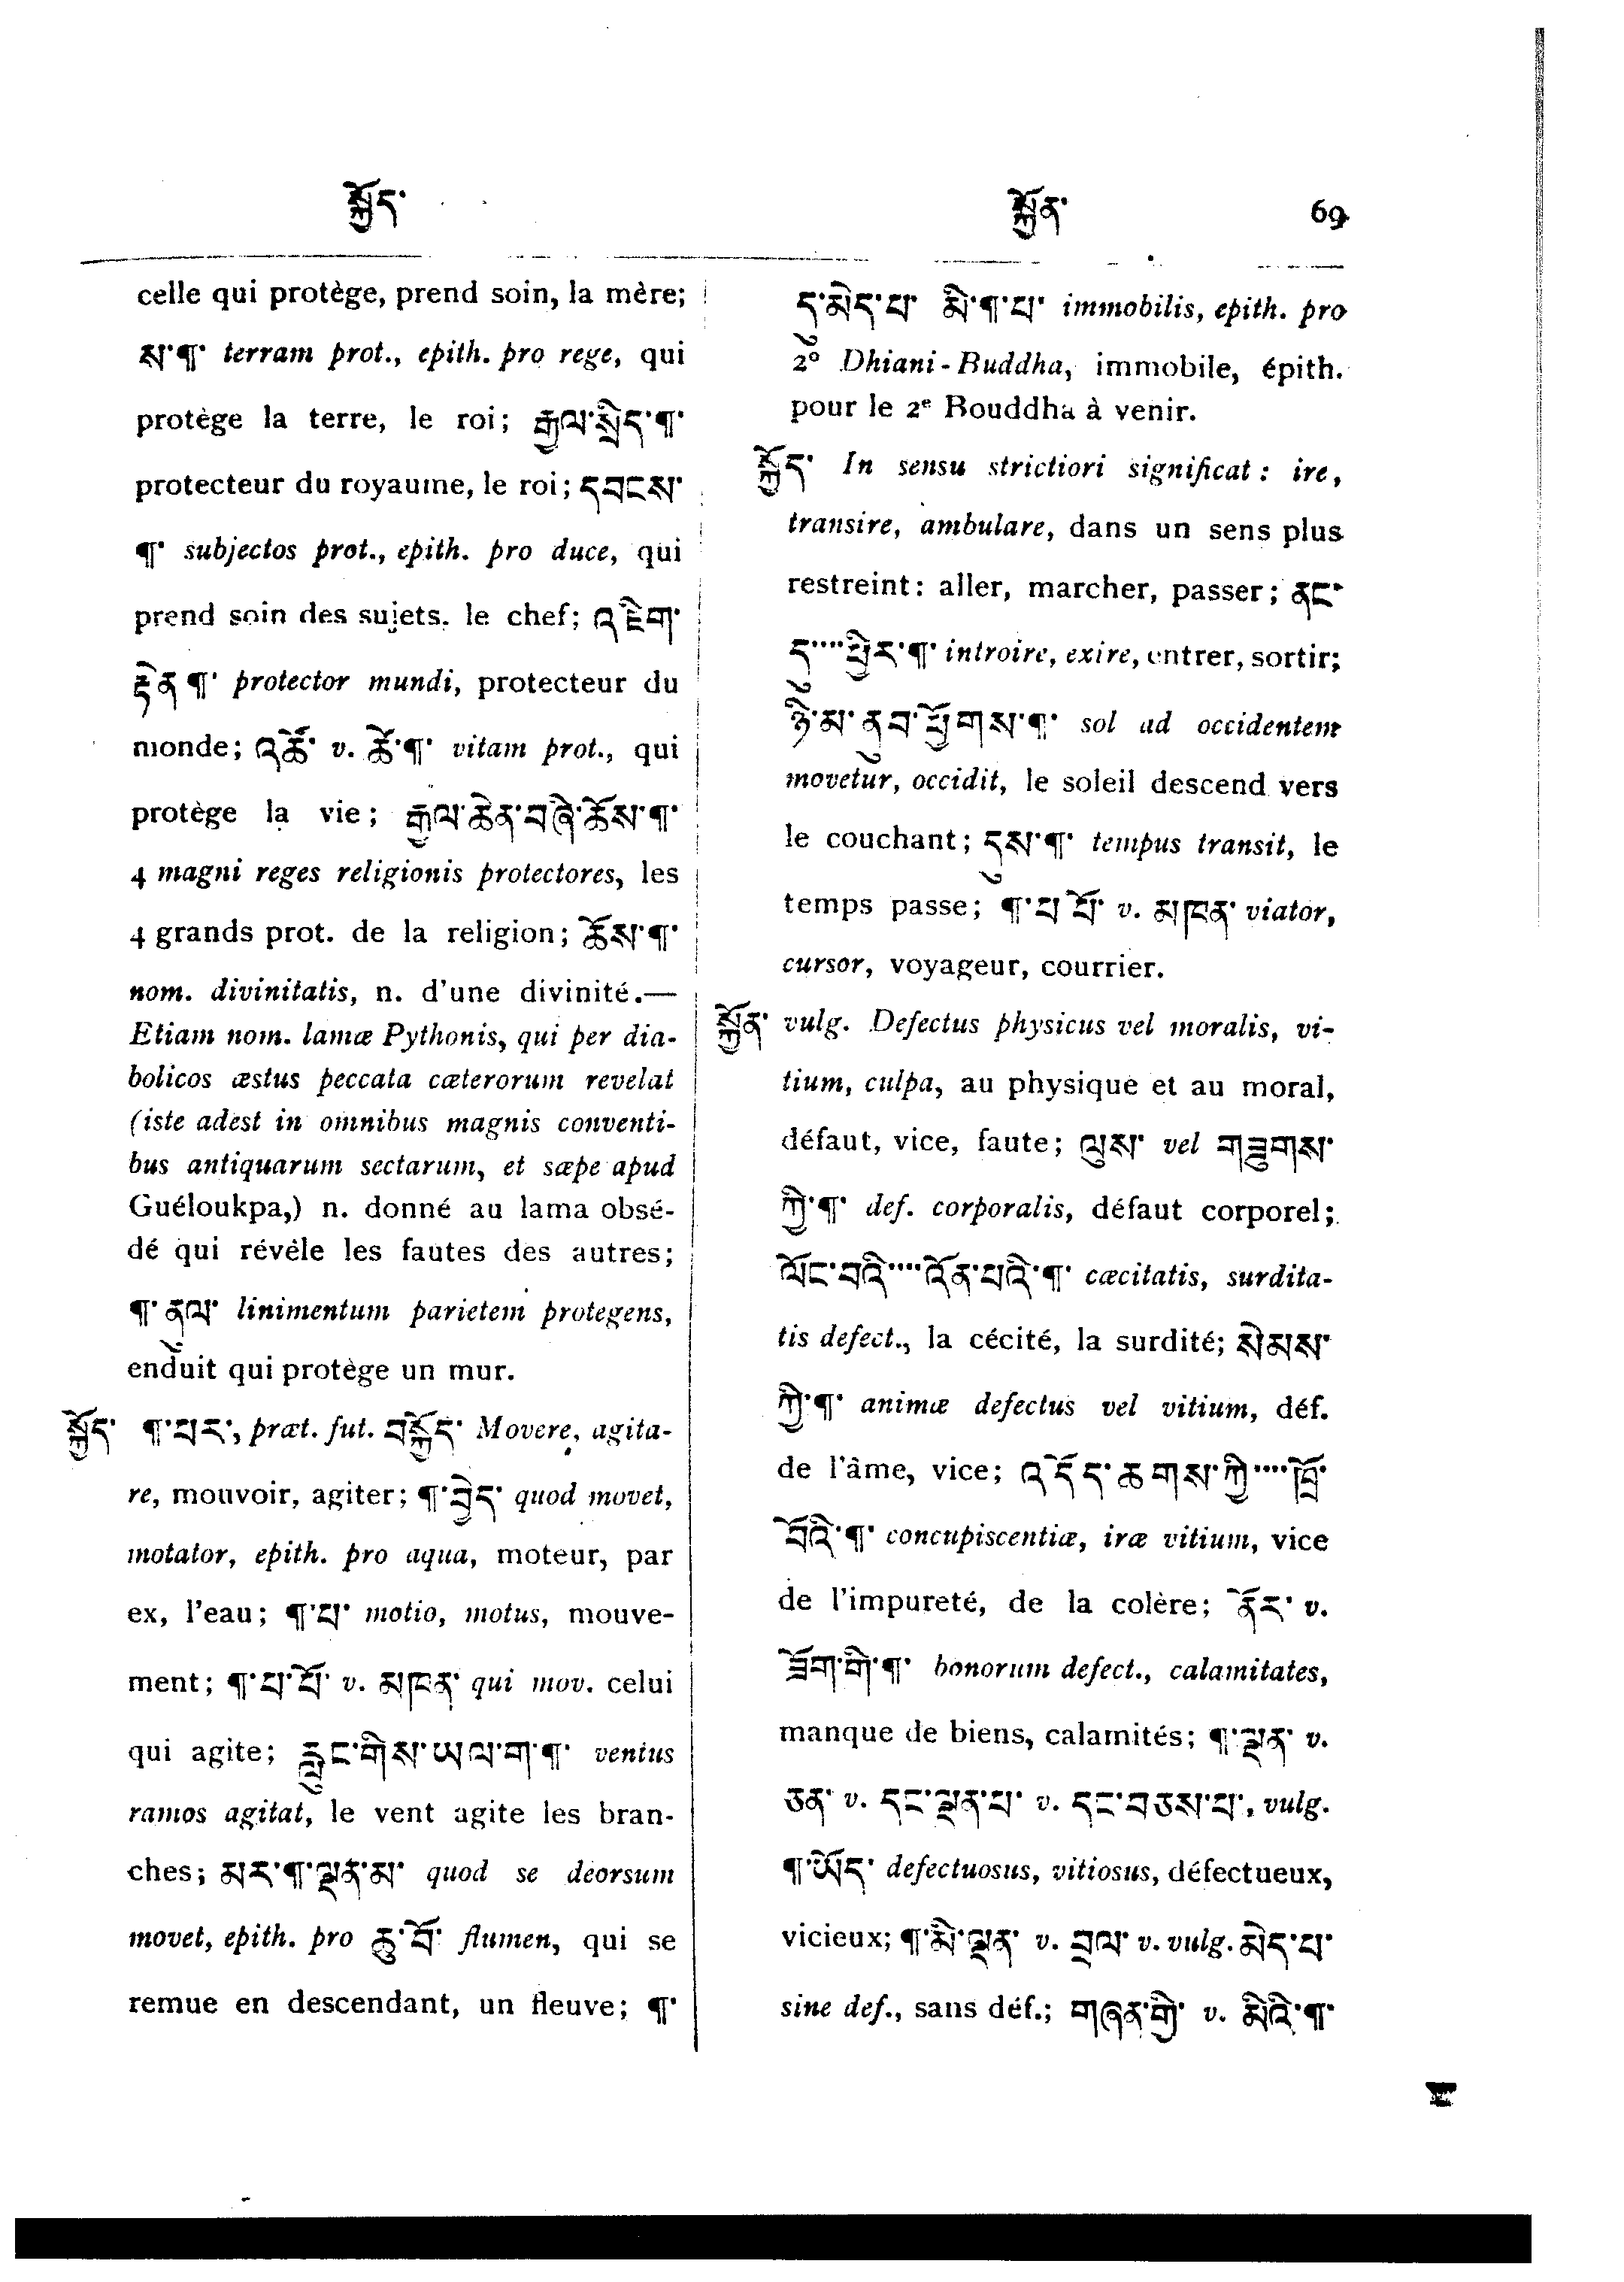 སྐྱོད་ སྐྱོན་ 69
celle qui protège, prend soin, la mère;
ས་¶་ terram prot., epith. pro rege, qui
protège la terre, le roi; རྒྱལ་སྲིད་¶་
protecteur du royaume, le roi; དབངས་
¶་ subjectos prot., epith. pro duce, qui
prend soin des sujets. le chef; འཇིག་
རྟེན¶་ protector mundi, protecteur du
monde; འཚོ་ v. ཚེ་¶་ vitam prot., qui
protège la vie; རྒྱལ་ཆེན་བཞི་ཆོས་¶་
4 magni reges religionis protectores, les
4 grands prot. de la religion; ཆོས་¶་
nom. divinitatis, n. d'une divinité.—
Etiam nom. lamæ Pythonis, qui per dia-
bolicos æstus peccata cæterorum revelat
(iste adest in omnibus magnis conventi-
bus antiquarum sectarum, et sæpe apud
Guéloukpa,) n. donné au lama obsé-
dé qui révèle les fautes des autres;
¶་ནུལ་ linimentum parietem protegens,
enduit qui protège un mur.
སྐྱོད་ ¶་པར་, præt. fut. བསྐྱོད་ Movere, agita-
re, mouvoir, agiter; ¶་བྱེད་ quod movet,
motator, epith. pro aqua, moteur, par
ex, l'eau; ¶་པ་ motio, motus, mouve-
ment; ¶་པ་པོ་ v. མཁན་ qui mov. celui
qui agite; རླུང་གིས་ཡལ་ག་¶་ ventus
ramos agitat, le vent agite les bran-
ches; མར་¶་ལྡན་མ་ quod se deorsum
movet, epith. pro ཆུ་བོ་ flumen, qui se
remue en descendant, un fleuve; ¶་
དུ་མེད་པ་ མི་¶་པ་ immobilis, epith. pro
2º Dhiani-Buddha, immobile, épith.
pour le 2e Bouddha à venir.
སྐྱོད་ In sensu strictiori significat: ire,
transire, ambulare, dans un sens plus
restreint: aller, marcher, passer; ནང་
དུ་....ཕྱིར་¶་ introire, exire, entrer, sortir;
ཉི་མ་ནུབ་ཕྱོགས་¶་ sol ad occidentem
movetur, occidit, le soleil descend vers
le couchant; དུས་¶་ tempus transit, le
temps passe; ¶་པ་པོ་ v. མཁན་ viator,
cursor, voyageur, courrier.
སྐྱོན་ vulg. Defectus physicus vel moralis, vi-
tium, culpa, au physique et au moral,
défaut, vice, faute; ལུས་ vel གཟུགས་
ཀྱི་¶་ def. corporalis, défaut corporel;
ལོང་བའི་....འོན་པའི་¶་ cæcitatis, surdita-
tis defect., la cécité, la surdité; སེམས་
ཀྱི་¶་ animæ defectus vel vitium, déf.
de l'âme, vice; འདོད་ཆགས་ཀྱི་....ཁྲོ་
བོའི་¶་ concupiscentiæ, iræ vitium, vice
de l'impureté, de la colère; ནོར་ v.
ཟོག་གི་¶་ bonorum defect., calamitates,
manque de biens, calamités; ¶་ལྡན་ v.
ཅན་ v. དང་ལྡན་པ་ v. དང་བཅས་པ་, vulg.
¶་ཡོད་ defectuosus, vitiosus, défectueux,
vicieux; ¶་མི་ལྡན་ v. བྲལ་ v. vulg. མེད་པ་
sine def., sans déf.; གཞན་གྱི་ v. མིའི་¶་